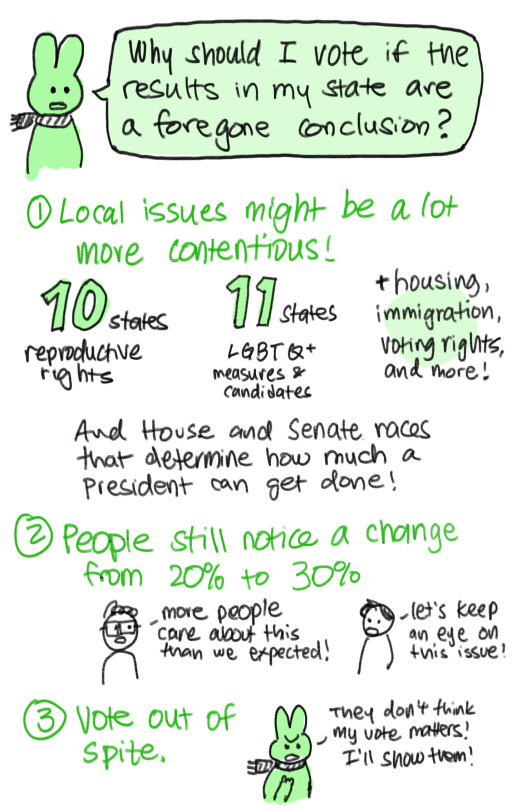 Why should I vote if the
results in my state are
a foregone conclusion?
① Local issues might be a lot
more contentious!
10 states
reproductive
rights
11 states
LGBTQ+
measures &
candidates
+ housing,
immigration,
voting rights,
and more!
And House and Senate races
that determine how much a
President can get done!
② People still notice a change
from 20% to 30%
more people
care about this
than we expected!
let's keep
an eye on
this issue!
③ Vote out of
spite.
They don't think
my vote matters!
I'll show them!